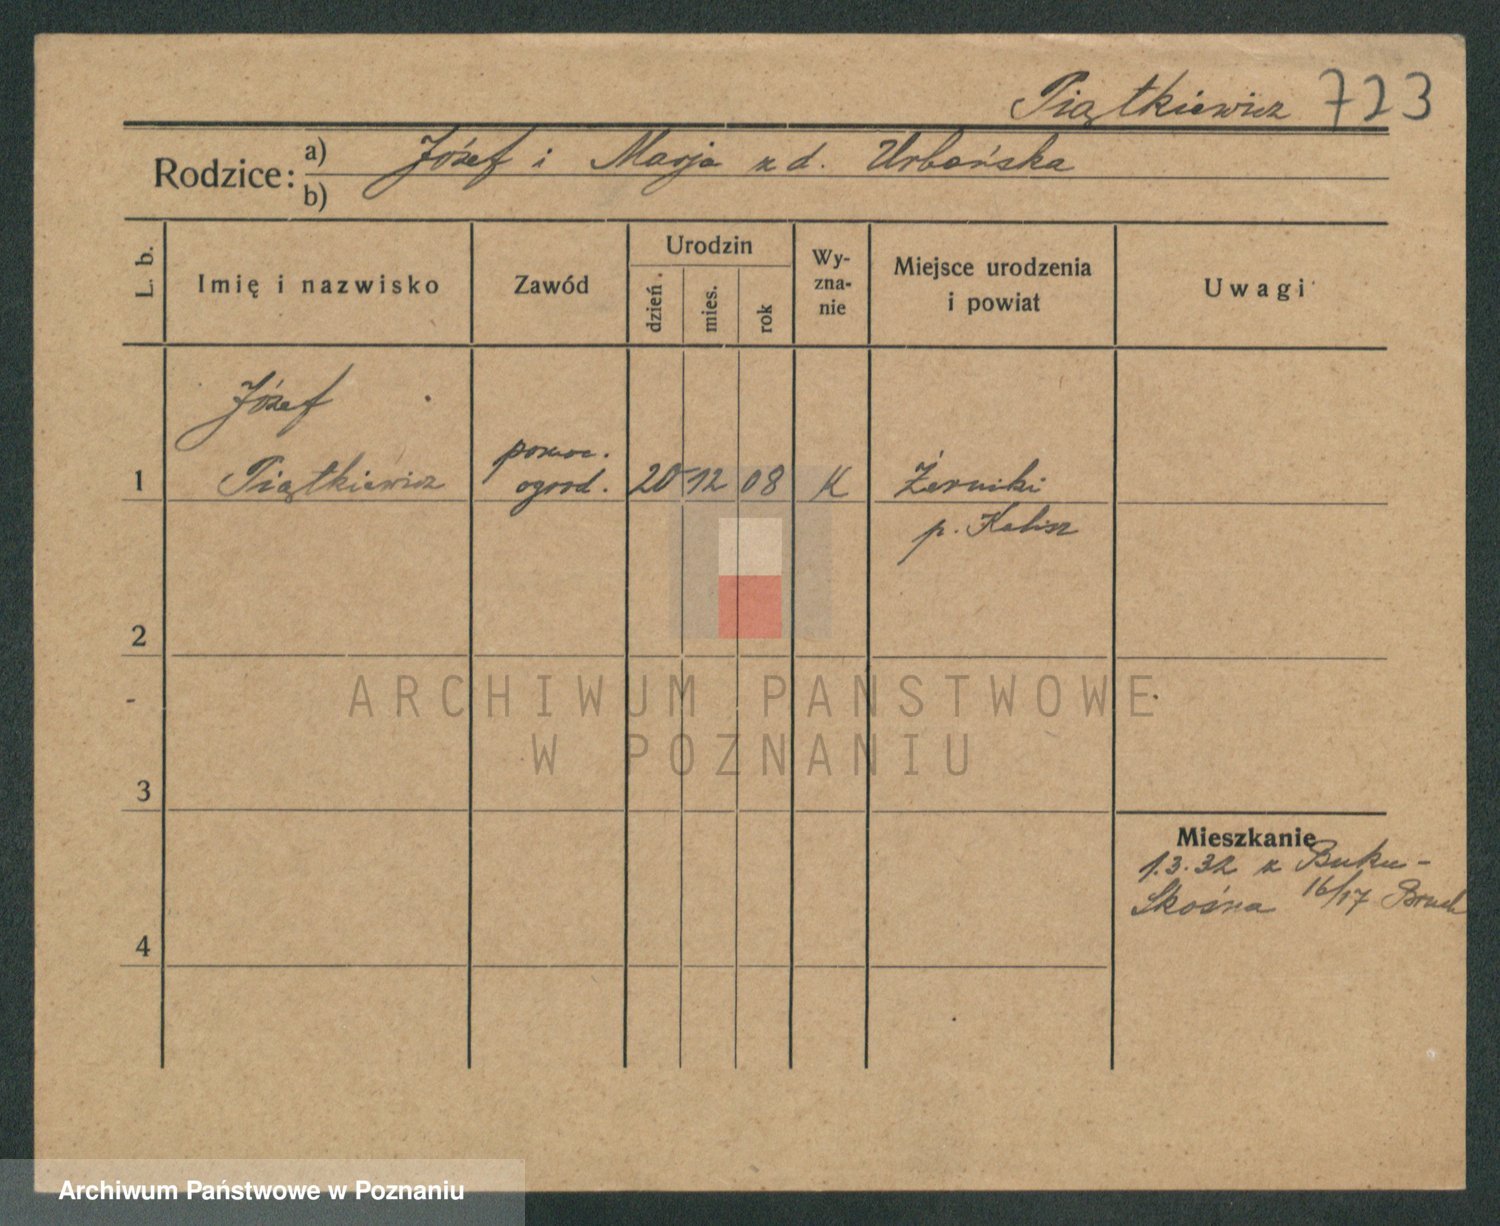 Piątkiewicz 723
Rodzice: a) Józef i Marja z d. Urbańska
b)
L. b.
Imię i nazwisko
Zawód
Urodzin
dzień
mies.
rok
Wy-
zna-
nie
Miejsce urodzenia
i powiat
Uwagi
Józef
1 Piątkiewicz
pomoc.
ogrod.
20 12 08 K
Żerniki
p. Kalisz
2
3
4
Mieszkanie
1.3.32 z Buku-
Skośna 16/17
ARCHIWUM PAŃSTWOWE
W POZNANIU
Archiwum Państwowe w Poznaniu